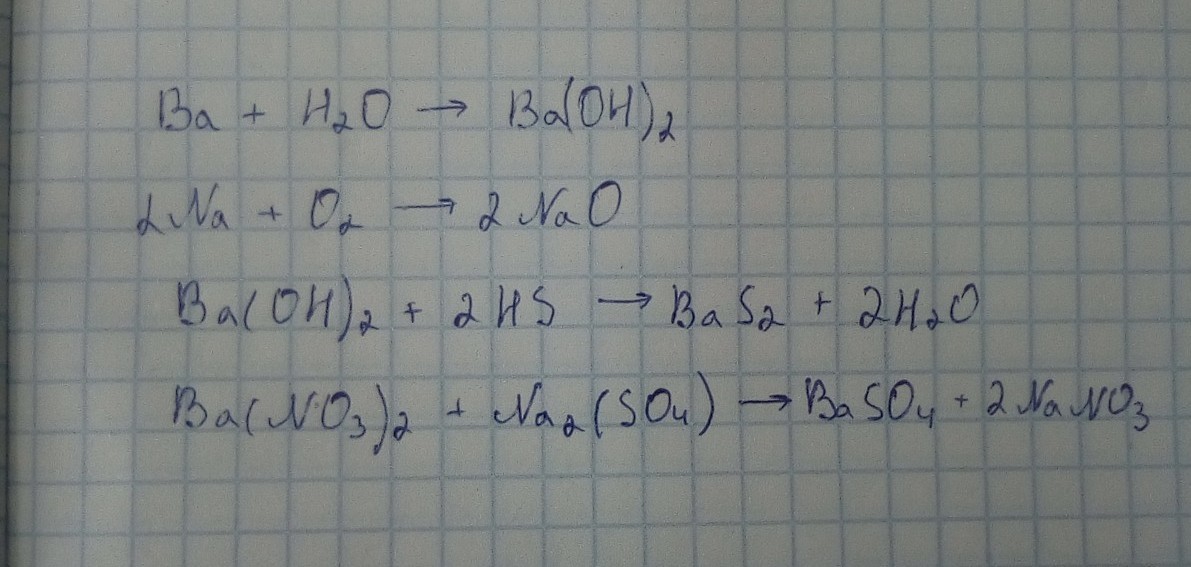 Ba + H₂O → Ba(OH)₂
2Na + O₂ → 2NaO
Ba(OH)₂ + 2HS → BaS₂ + 2H₂O
Ba(NO₃)₂ + Na₂(SO₄) → BaSO₄ + 2NaNO₃